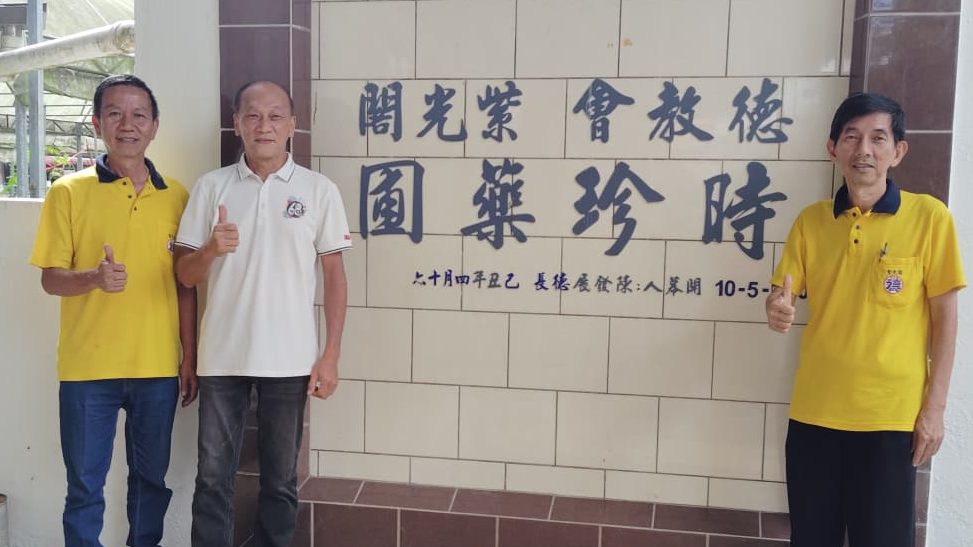 德教會 紫光閣
時珍藥圃
10-5- 開幕人:陳發展德長 己丑年四月十六